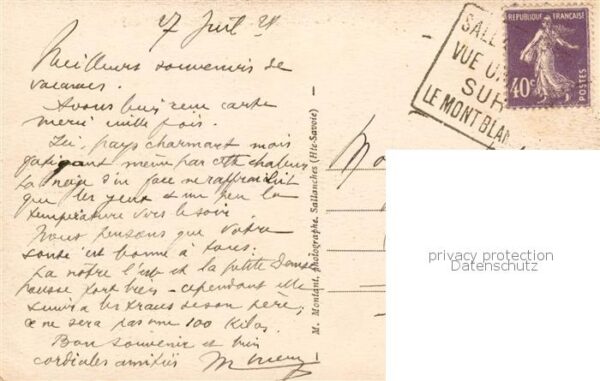 27 Juil 28
Meilleurs souvenirs de
vacances.
Avons reçu carte
merci mille fois.
Ici, pays charmant mais
fatigant même par cette chaleur
La neige d'en face ne rafraîchit
que les yeux et un peu la
température vers le soir
Nous pensons que votre
santé est bonne à tous.
La nôtre l'est et la petite
pousse fort bien - cependant elle
de son père,
ce ne sera pas une 100 kilos.
Bon souvenir et très
cordiales amitiés
M. Montant, photographe, Sallanches (Hte-Savoie)
SALL
VUE U
SUR
LE MONT BLAN
REPUBLIQUE FRANÇAISE
40c
POSTES
privacy protection
Datenschutz